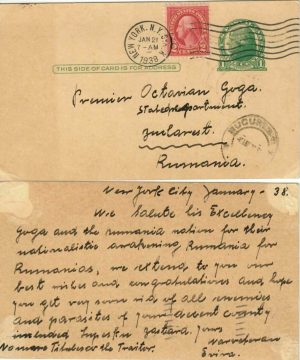 NEW YORK, N.Y.
JAN 21
7-AM
1938
THIS SIDE OF CARD IS FOR ADDRESS
Premier Octavian Goga.
State department.
Bucarest.
Rumania.
BUCURESTI
New York City January - 38.
We Salute his Excellency
Goga and the rumania nation for their
nationalistic awakening Rumania for
Rumanias, we extend to you our
best wishes and congratulations and hope
you get very soon rid of all enemies
and parasites of your decent country
Titulescu the Traitor.